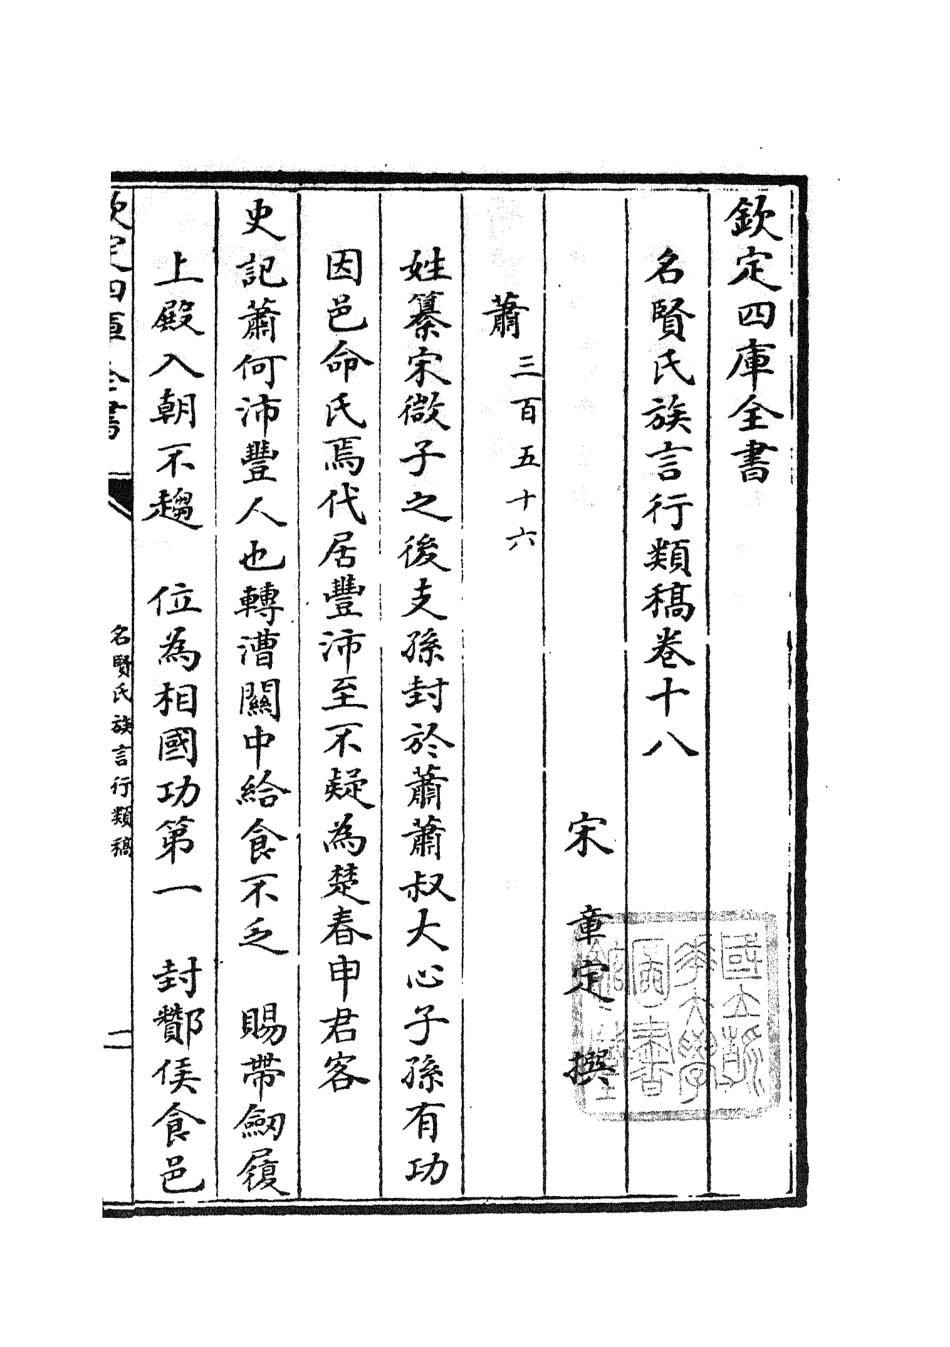 欽定四庫全書
名賢氏族言行類稿卷十八
宋 章定 撰
蕭三百五十六
姓纂宋微子之後支孫封於蕭蕭叔大心子孫有功
因邑命氏焉代居豐沛至不疑為楚春申君客
史記蕭何沛豐人也轉漕關中給食不乏 賜帶劒履
上殿入朝不趨 位為相國功第一 封酇侯食邑
欽定四庫全書
名賢氏族言行類稿
一